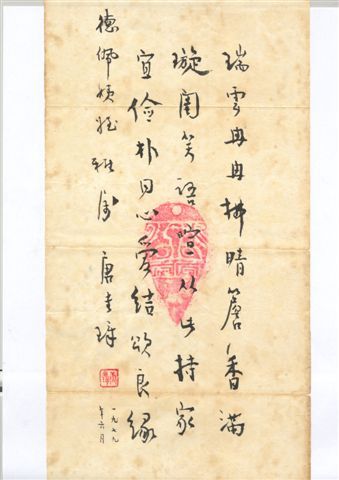 瑞雲冉冉拂晴簷香滿
璇閨笑語喧從此持家
宜儉朴同心愛結頌良緣
德佩賢姪雅屬
唐圭璋
一九七九
年六月